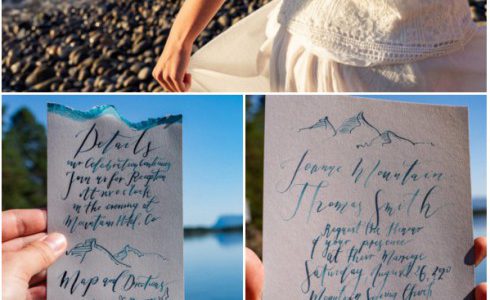 Details
our Celebration Continuing
Join us for Reception
At six o'clock
in the evening at
Mountain Hotel, Co
Map and Directions
Joanne Mountain
Thomas Smith
Request the Honor
of your presence
at their Marriage
Saturday, August 26, 20
Mountain Spring Church